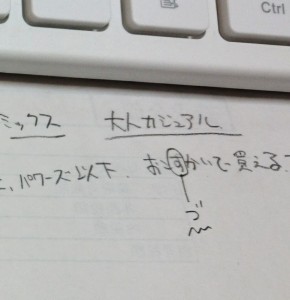 Ctrl
ミックス 大人カジュアル
パワーズ以下. お小ずかいで買える
づ